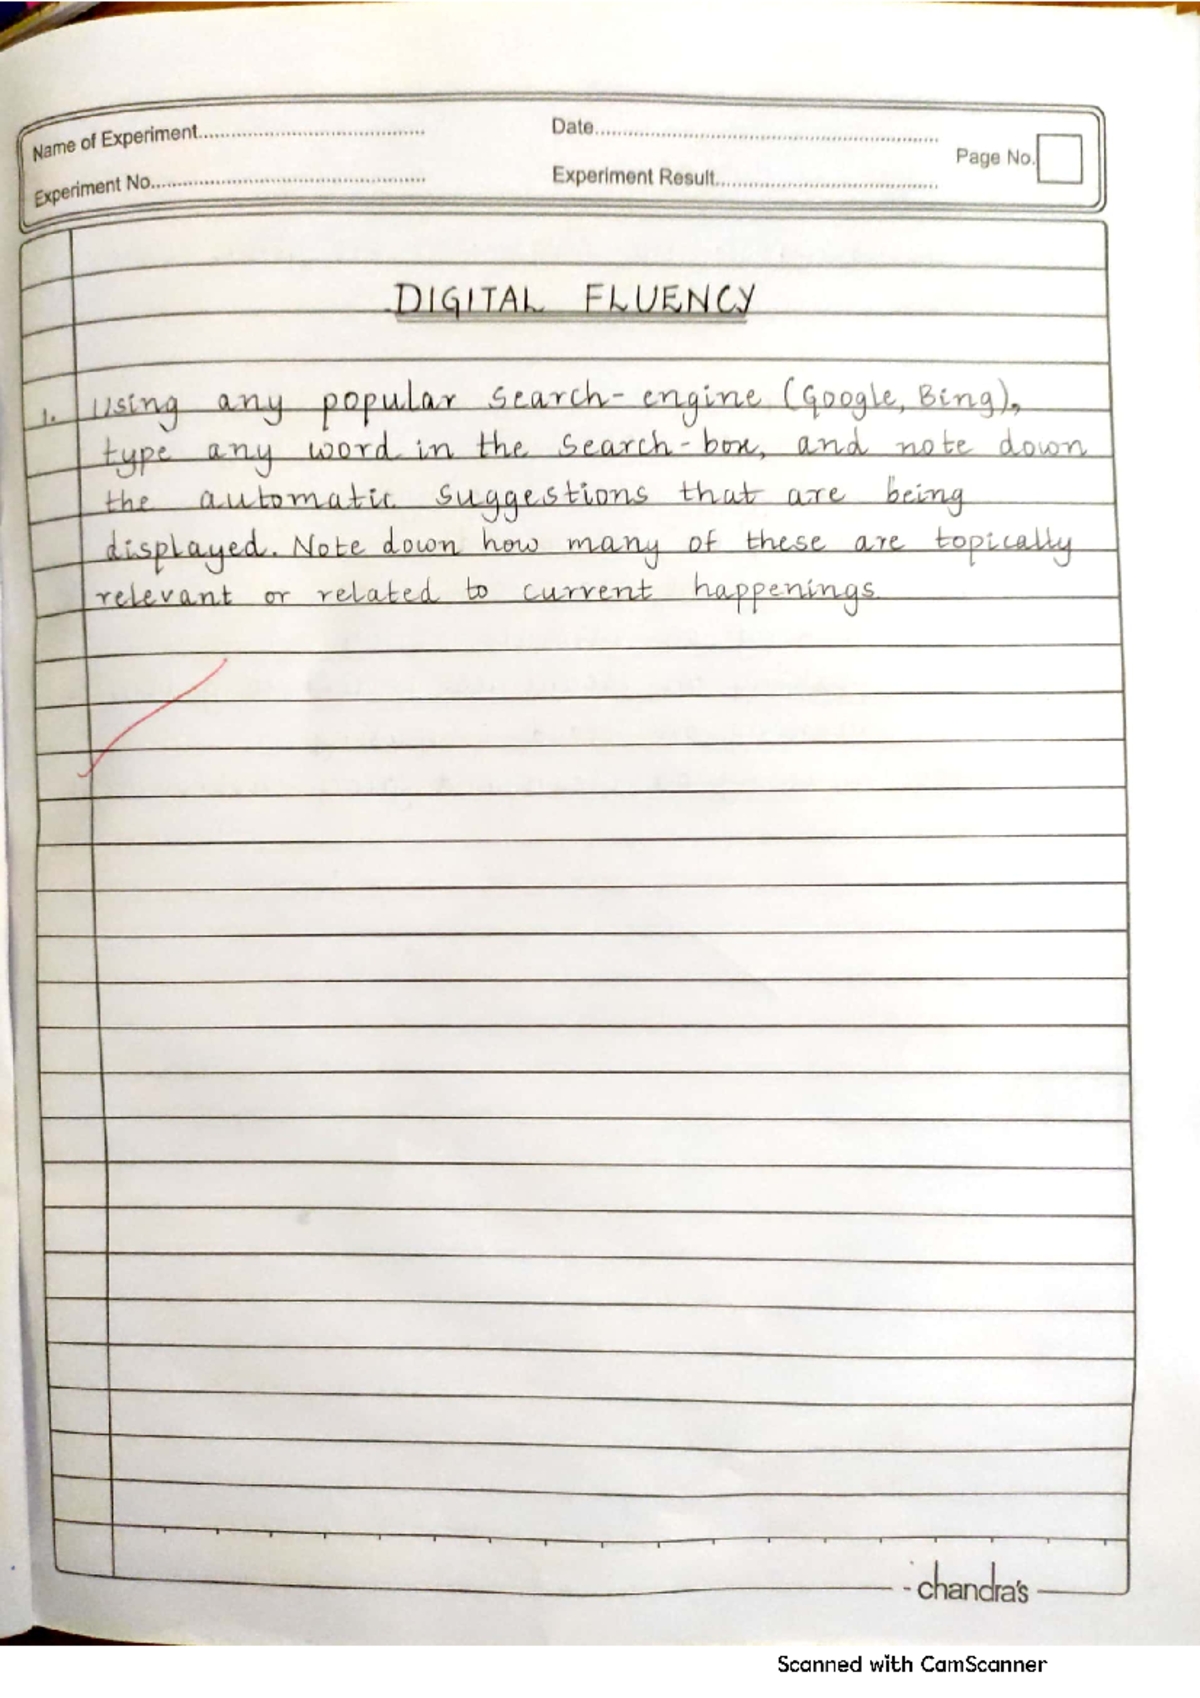 Name of Experiment........................................ Date............................................................
Page No.
Experiment No................................................ Experiment Result.......................................
DIGITAL FLUENCY
1. Using any popular search-engine (Google, Bing),
type any word in the search-box, and note down
the automatic suggestions that are being
displayed. Note down how many of these are topically
relevant or related to current happenings.
chandra's
Scanned with CamScanner